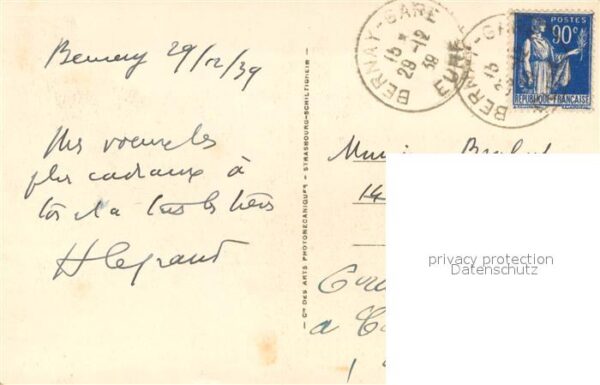 Bernay 29/12/39
Mes voeux les
plus cordiaux à
toi et à tous les tiens
H Legrand
Cie DES ARTS PHOTOMECANIQUES - STRASBOURG-SCHILTIGHEIM
BERNAY-GARE
15 *
29-12
39
EURE
BERNAY-GARE
15
POSTES
90c
REPUBLIQUE FRANÇAISE
14
à
privacy protection
Datenschutz